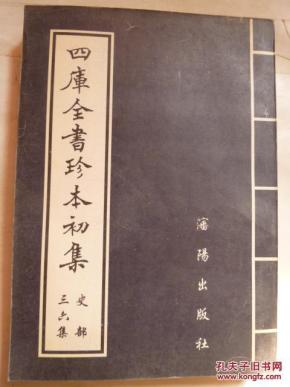 四庫全書珍本初集
史部
三六集
瀋陽出版社
孔夫子旧书网